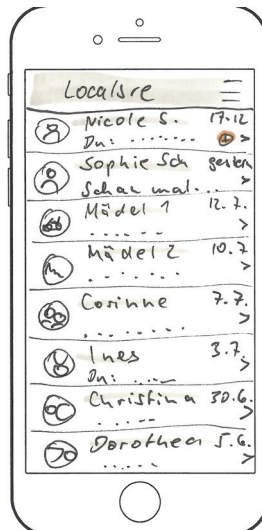 Localsre
Nicole S. 17.12
Du: ........
Sophie Sch gestern
Schau mal...
Mädel 1 12.7.
......
Mädel 2 10.7
.......
Corinne 7.7.
........
Ines 3.7.
Du: ....
Christina 30.6.
.....
Dorothea 5.6.
.....